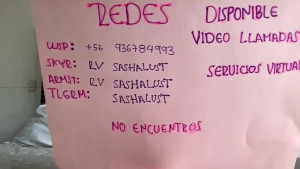 REDES
WSP: +56 936784993
SKYP: RV SASHALUST
ARMST: RV SASHALUST
TLGRM: SASHALUST
NO ENCUENTROS
DISPONIBLE
VIDEO LLAMADAS
SERVICIOS VIRTUA